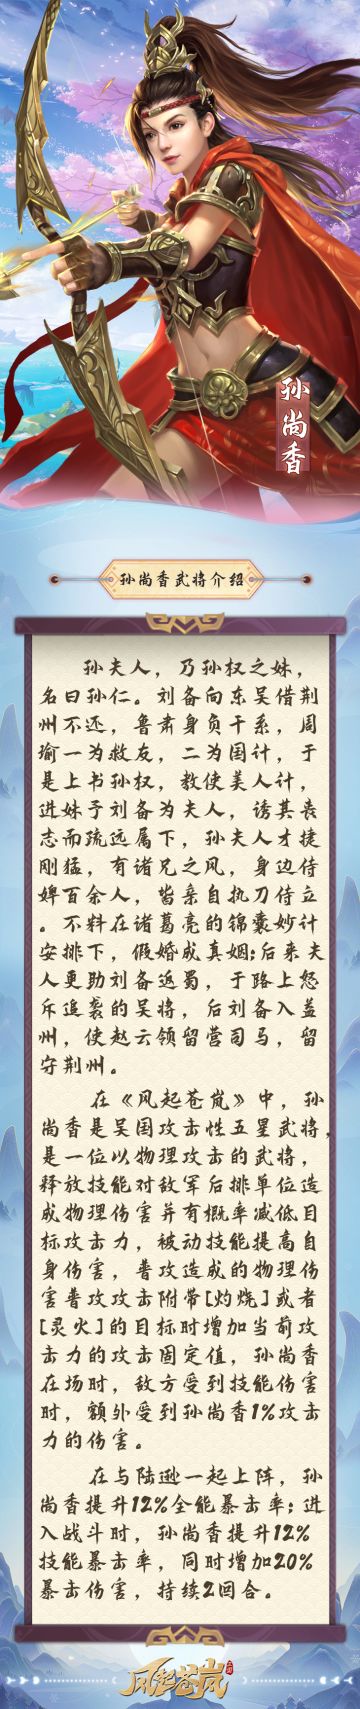 孙尚香
孙尚香武将介绍
孙夫人，乃孙权之妹，
名曰孙仁。刘备向东吴借荆
州不还，鲁肃身负干系，周
瑜一为救友，二为国计，于
是上书孙权，教使美人计，
进妹予刘备为夫人，诱其丧
志而疏远属下，孙夫人才捷
刚猛，有诸兄之风，身边侍
婢百余人，皆亲自执刀侍立
。不料在诸葛亮的锦囊妙计
安排下，假婚成真姻；后来夫
人更助刘备返蜀，于路上怒
斥追袭的吴将，后刘备入益
州，使赵云领留营司马，留
守荆州。
在《风起苍岚》中，孙
尚香是吴国攻击性五星武将，
是一位以物理攻击的武将，
释放技能对敌军后排单位造
成物理伤害并有概率减低目
标攻击力，被动技能提高自
身伤害，普攻造成的物理伤
害普攻攻击附带[灼烧]或者
[灵火]的目标时增加当前攻
击力的攻击固定值，孙尚香
在场时，敌方受到技能伤害
时，额外受到孙尚香1%攻击
力的伤害。
在与陆逊一起上阵，孙
尚香提升12%全能暴击率；进
入战斗时，孙尚香提升12%
技能暴击率，同时增加20%
暴击伤害，持续2回合。
风起苍岚